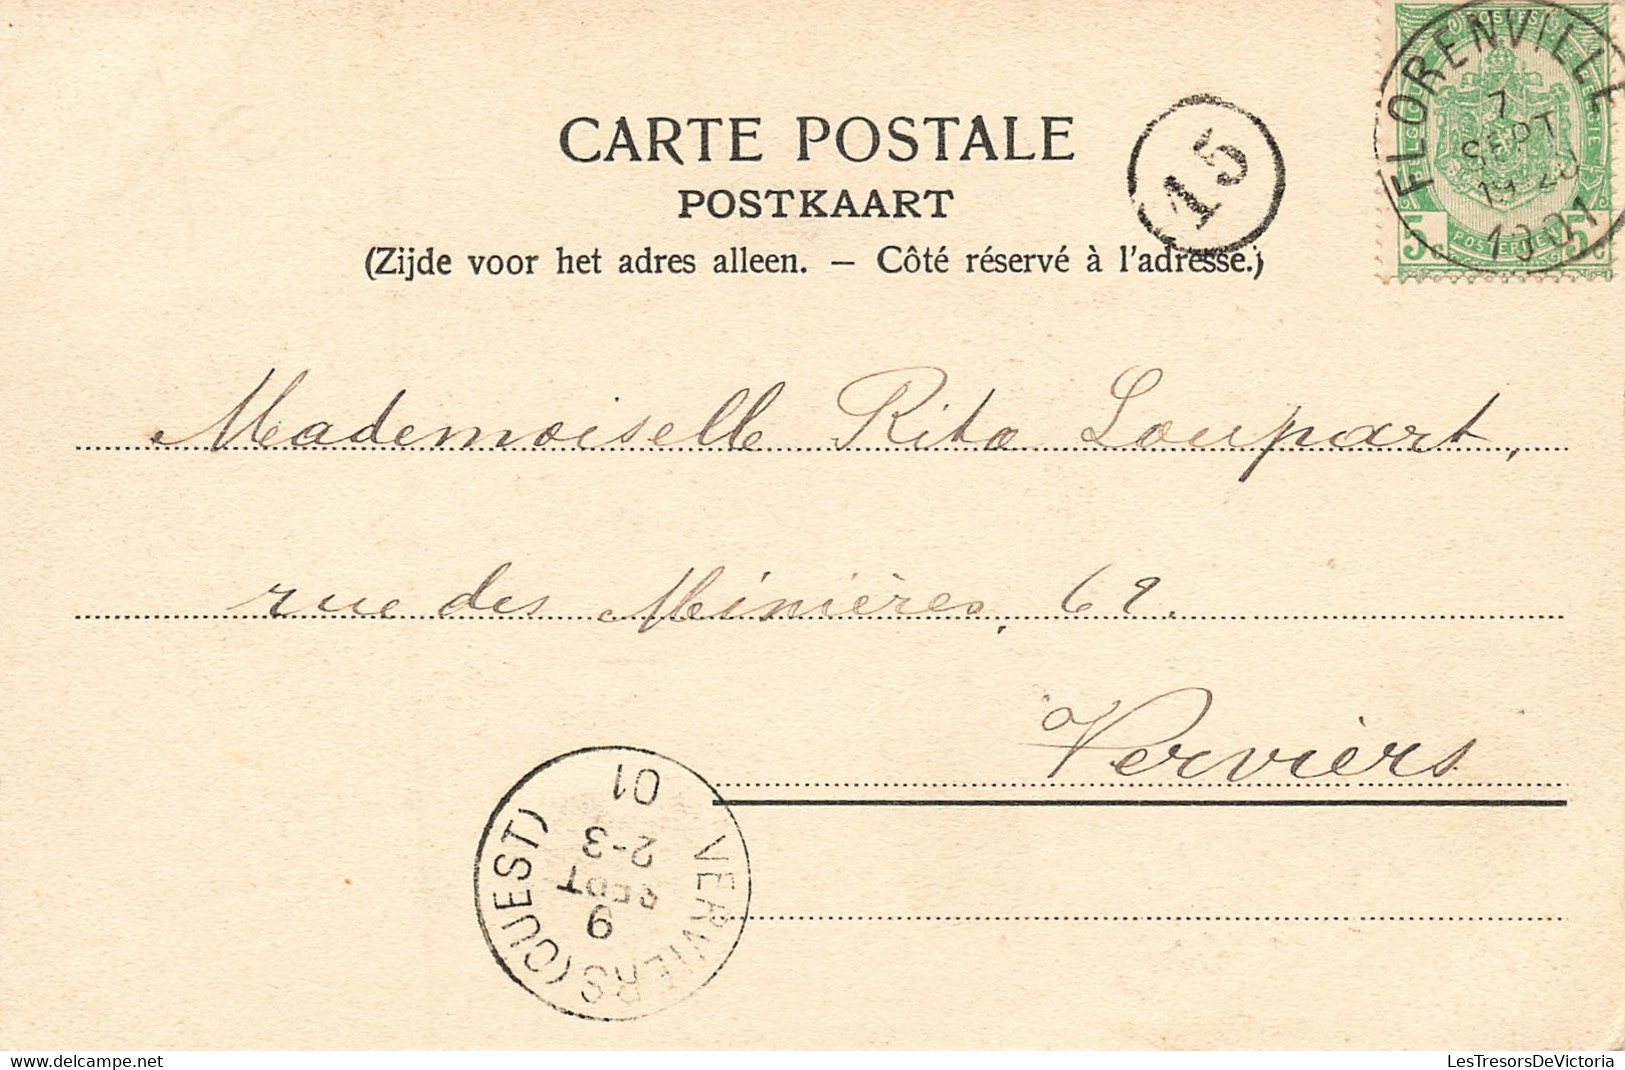 CARTE POSTALE
POSTKAART
(Zijde voor het adres alleen. – Côté réservé à l'adresse.)
15
FLORENVILLE
7
SEPT
1901
POSTES
5c 5c
Mademoiselle Rita Loupart,
rue des Minières, 69.
Verviers
VERVIERS (OUEST)
9
SEPT
2-3
01
LesTresorsDeVictoria